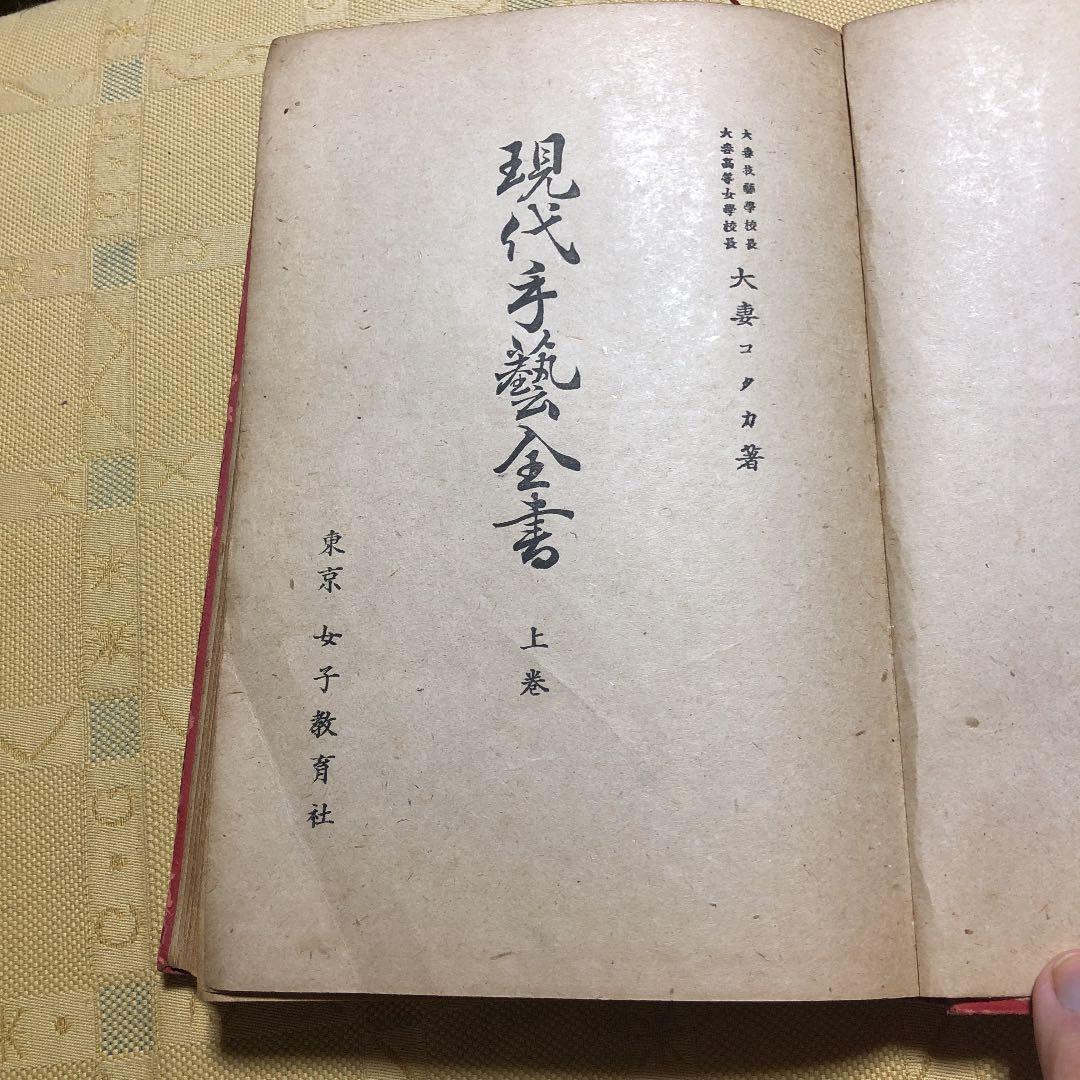 大妻技藝學校長
大妻高等女學校長
大妻コタカ著
現代手藝全書 上巻
東京 女子教育社